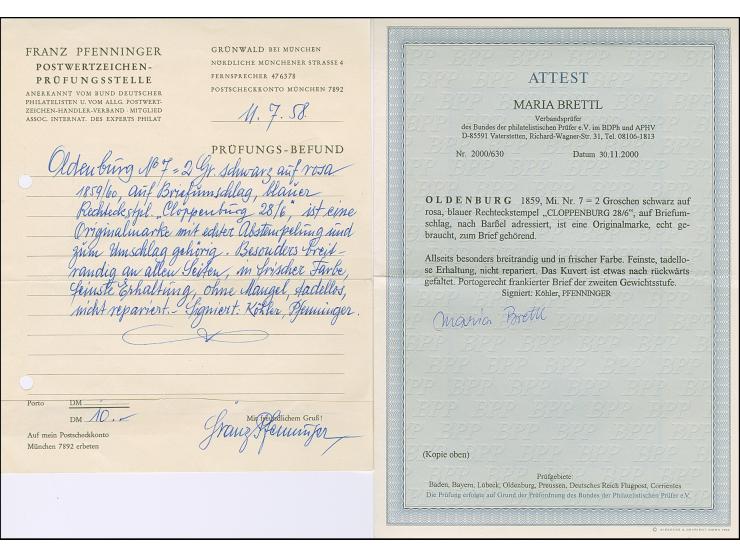 FRANZ PFENNINGER
POSTWERTZEICHEN-
PRÜFUNGSSTELLE
ANERKANNT VOM BUND DEUTSCHER
PHILATELISTEN U. VOM ALLG. POSTWERT-
ZEICHEN-HÄNDLER-VERBAND · MITGLIED
ASSOC. INTERNAT. DES EXPERTS PHILAT
GRÜNWALD BEI MÜNCHEN
NÖRDLICHE MÜNCHENER STRASSE 4
FERNSPRECHER 476378
POSTSCHECKKONTO MÜNCHEN 7892
11. 7. 58.
PRÜFUNGS-BEFUND
Oldenburg No 7 = 2 Gr. schwarz auf rosa
1859/60, auf Briefumschlag, blauer
Rechteckstpl. „Cloppenburg 28/6", ist eine
Originalmarke mit echter Abstempelung und
zum Umschlag gehörig. Besonders breit-
randig an allen Seiten, in frischer Farbe,
feinste Erhaltung, ohne Mangel, tadellos,
nicht repariert. – Signiert: Köhler, Pfenninger.
Porto DM
DM 10.–
Mit freundlichem Gruß!
Franz Pfenninger
Auf mein Postscheckkonto
München 7892 erbeten
ATTEST
MARIA BRETTL
Verbandsprüfer
des Bundes der philatelistischen Prüfer e.V. im BDPh und APHV
D-85591 Vaterstetten, Richard-Wagner-Str. 31, Tel. 08106-1813
Nr. 2000/630 Datum 30.11.2000
OLDENBURG 1859, Mi. Nr. 7 = 2 Groschen schwarz auf
rosa, blauer Rechteckstempel „CLOPPENBURG 28/6", auf Briefum-
schlag, nach Barßel adressiert, ist eine Originalmarke, echt ge-
braucht, zum Brief gehörend.
Allseits besonders breitrandig und in frischer Farbe. Feinste, tadello-
se Erhaltung, nicht repariert. Das Kuvert ist etwas nach rückwärts
gefaltet. Portogerecht frankierter Brief der zweiten Gewichtsstufe.
Signiert: Köhler, PFENNINGER
Maria Brettl
(Kopie oben)
Prüfgebiete:
Baden, Bayern, Lübeck, Oldenburg, Preussen, Deutsches Reich Flugpost, Corrientes
Die Prüfung erfolgte auf Grund der Prüfordnung des Bundes der Philatelistischen Prüfer e.V.